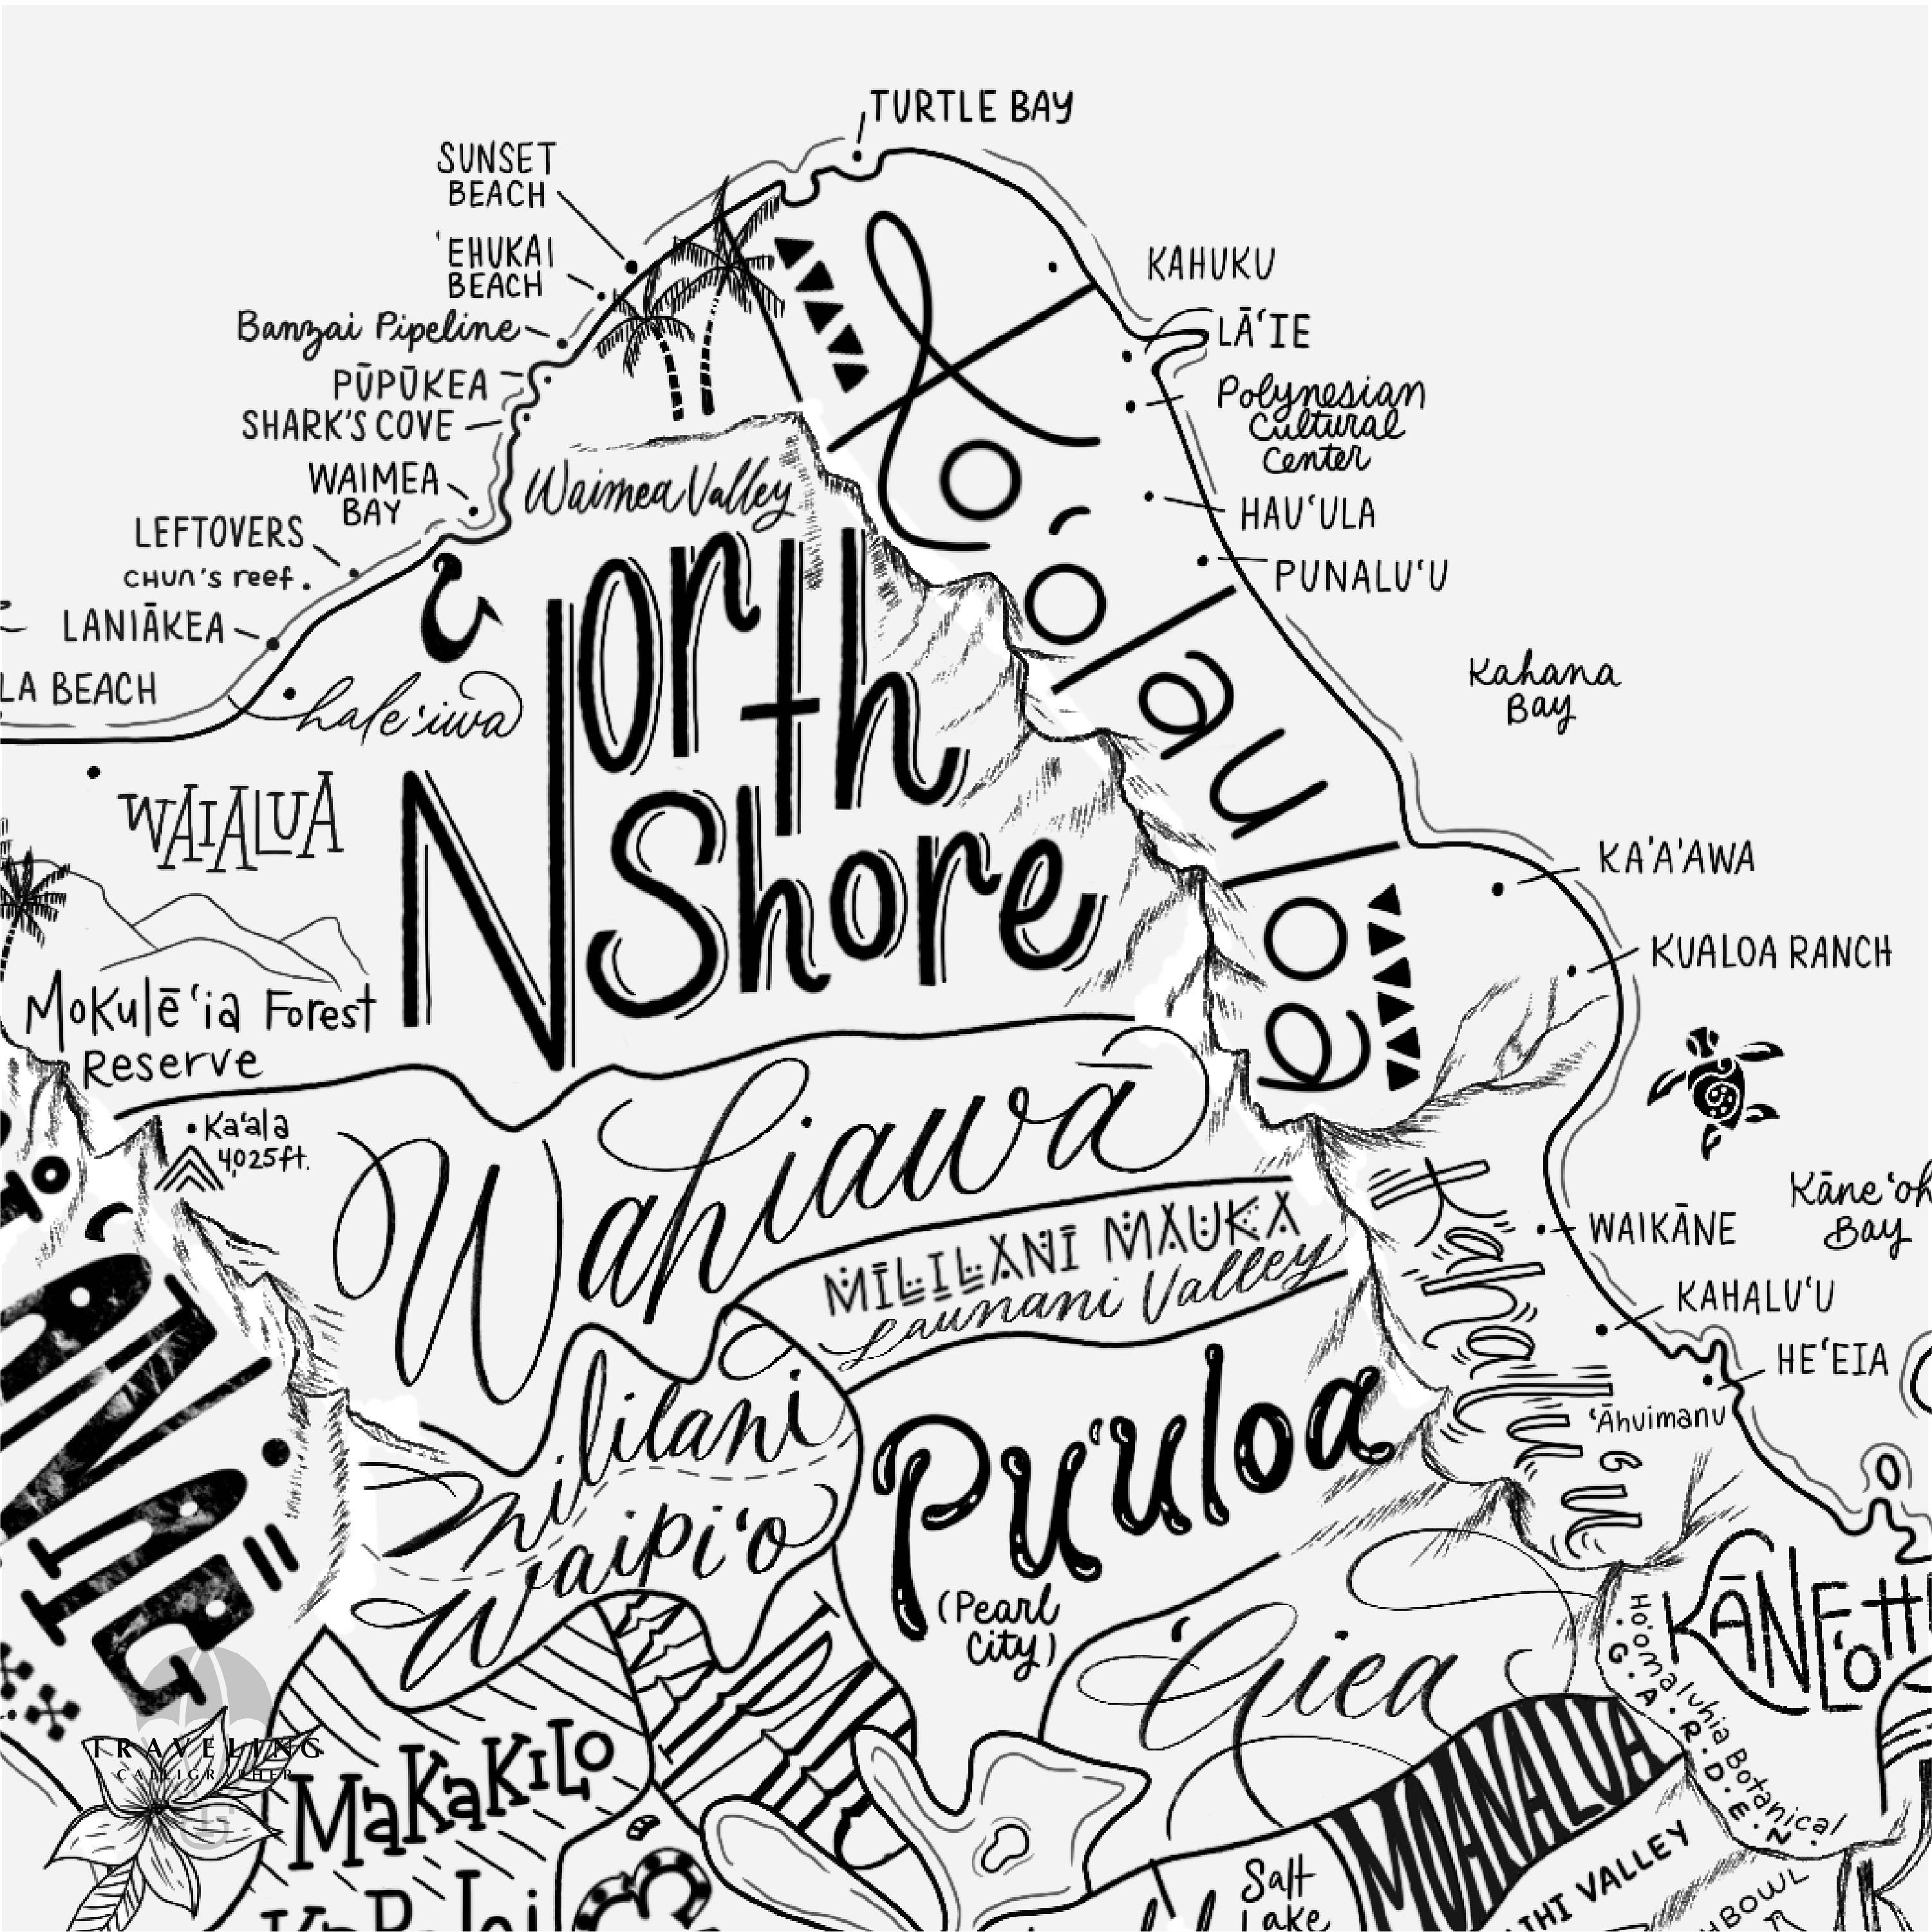 TURTLE BAY
SUNSET
BEACH
'EHUKAI
BEACH
Banzai Pipeline
PŪPŪKEA
SHARK'S COVE
WAIMEA
BAY
LEFTOVERS
CHUN'S reef.
LANIĀKEA
LA BEACH
hale'iwa
WAIALUA
Mokulē'ia Forest
Reserve
Waimea Valley
North
Shore
Ko'olauloa
KAHUKU
LĀ'IE
Polynesian
Cultural
Center
HAU'ULA
PUNALU'U
Kahana
Bay
KA'A'AWA
KUALOA RANCH
Ka'ala
4,025ft.
Wahiawā
MILILANI MAUKA
Launani Valley
Kahalu'u
WAIKĀNE
Kāne'oh
Bay
KAHALU'U
HE'EIA
'Āhuimanu
Mililani
Waipi'o
Pu'uloa
(Pearl
City)
'Aiea
KĀNE'OH
Ho'omaluhia Botanical
G.A.R.D.E.N.
MOANALUA
Salt
Lake
IHI VALLEY
HBOWL
TRAVELING
CALLIGRAPHER
MaKaKiLo